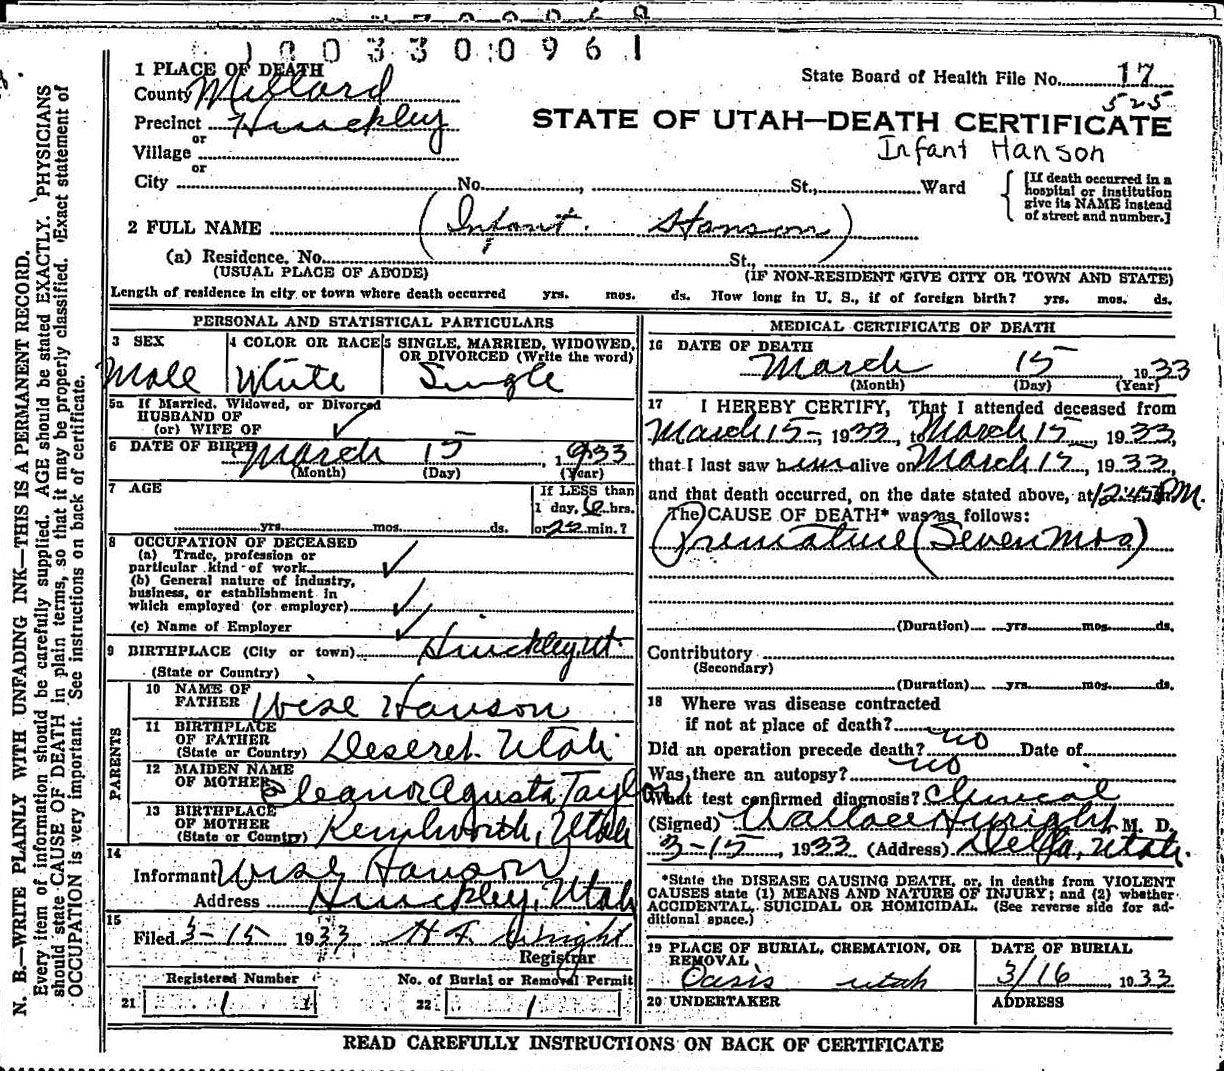 1 0 0 3 3 0 0 9 6 1
1 PLACE OF DEATH
State Board of Health File No. 17
County Millard
525
Precinct Hinckley
STATE OF UTAH—DEATH CERTIFICATE
or
Infant Hanson
Village
or
City No. , St., Ward
[If death occurred in a hospital or institution give its NAME instead of street and number.]
2 FULL NAME (Infant. Hanson)
(a) Residence. No. St.,
(USUAL PLACE OF ABODE) (IF NON-RESIDENT GIVE CITY OR TOWN AND STATE)
Length of residence in city or town where death occurred yrs. mos. ds. How long in U. S., if of foreign birth? yrs. mos. ds.
PERSONAL AND STATISTICAL PARTICULARS
3 SEX 4 COLOR OR RACE 5 SINGLE, MARRIED, WIDOWED,
OR DIVORCED (Write the word)
Male White Single
5a If Married, Widowed, or Divorced
HUSBAND OF
(or) WIFE OF
6 DATE OF BIRTH March 15 , 1933
(Month) (Day) (Year)
7 AGE If LESS than
1 day, 6 hrs.
yrs. mos. ds. or 22 min.?
8 OCCUPATION OF DECEASED
(a) Trade, profession or
particular kind of work
(b) General nature of industry,
business, or establishment in
which employed (or employer)
(c) Name of Employer
9 BIRTHPLACE (City or town) Hinckley, Ut.
(State or Country)
PARENTS
10 NAME OF
FATHER Wise Hanson
11 BIRTHPLACE
OF FATHER
(State or Country) Deseret. Utah
12 MAIDEN NAME
OF MOTHER Eleanor Agusta Taylor
13 BIRTHPLACE
OF MOTHER
(State or Country) Kenilworth, Utah
14
Informant Wise Hanson
Address Hinckley, Utah
15
Filed 3-15 1933 H F Wright
Registrar
Registered Number No. of Burial or Removal Permit
21 1 22 1
MEDICAL CERTIFICATE OF DEATH
16 DATE OF DEATH
March 15 , 1933
(Month) (Day) (Year)
17 I HEREBY CERTIFY, That I attended deceased from
March 15-, 1933, to March 15, 1933,
that I last saw him alive on March 15, 1933,
and that death occurred, on the date stated above, at 12:45 P.M.
The CAUSE OF DEATH* was as follows:
Premature (Seven Mos)
(Duration) yrs. mos. ds.
Contributory
(Secondary)
(Duration) yrs. mos. ds.
18 Where was disease contracted
if not at place of death?
Did an operation precede death? no Date of
Was there an autopsy? no
What test confirmed diagnosis? Clinical
(Signed) Wallace H Wright M. D.
3-15, 1933 (Address) Delta, Utah.
*State the DISEASE CAUSING DEATH, or, in deaths from VIOLENT
CAUSES state (1) MEANS AND NATURE OF INJURY; and (2) whether
ACCIDENTAL, SUICIDAL OR HOMICIDAL. (See reverse side for ad-
ditional space.)
19 PLACE OF BURIAL, CREMATION, OR
REMOVAL
Oasis Utah
DATE OF BURIAL
3/16, 1933
20 UNDERTAKER ADDRESS
READ CAREFULLY INSTRUCTIONS ON BACK OF CERTIFICATE
N. B.—WRITE PLAINLY WITH UNFADING INK—THIS IS A PERMANENT RECORD.
Every item of information should be carefully supplied. AGE should be stated EXACTLY. PHYSICIANS
should state CAUSE OF DEATH in plain terms, so that it may be properly classified. Exact statement of
OCCUPATION is very important. See instructions on back of certificate.